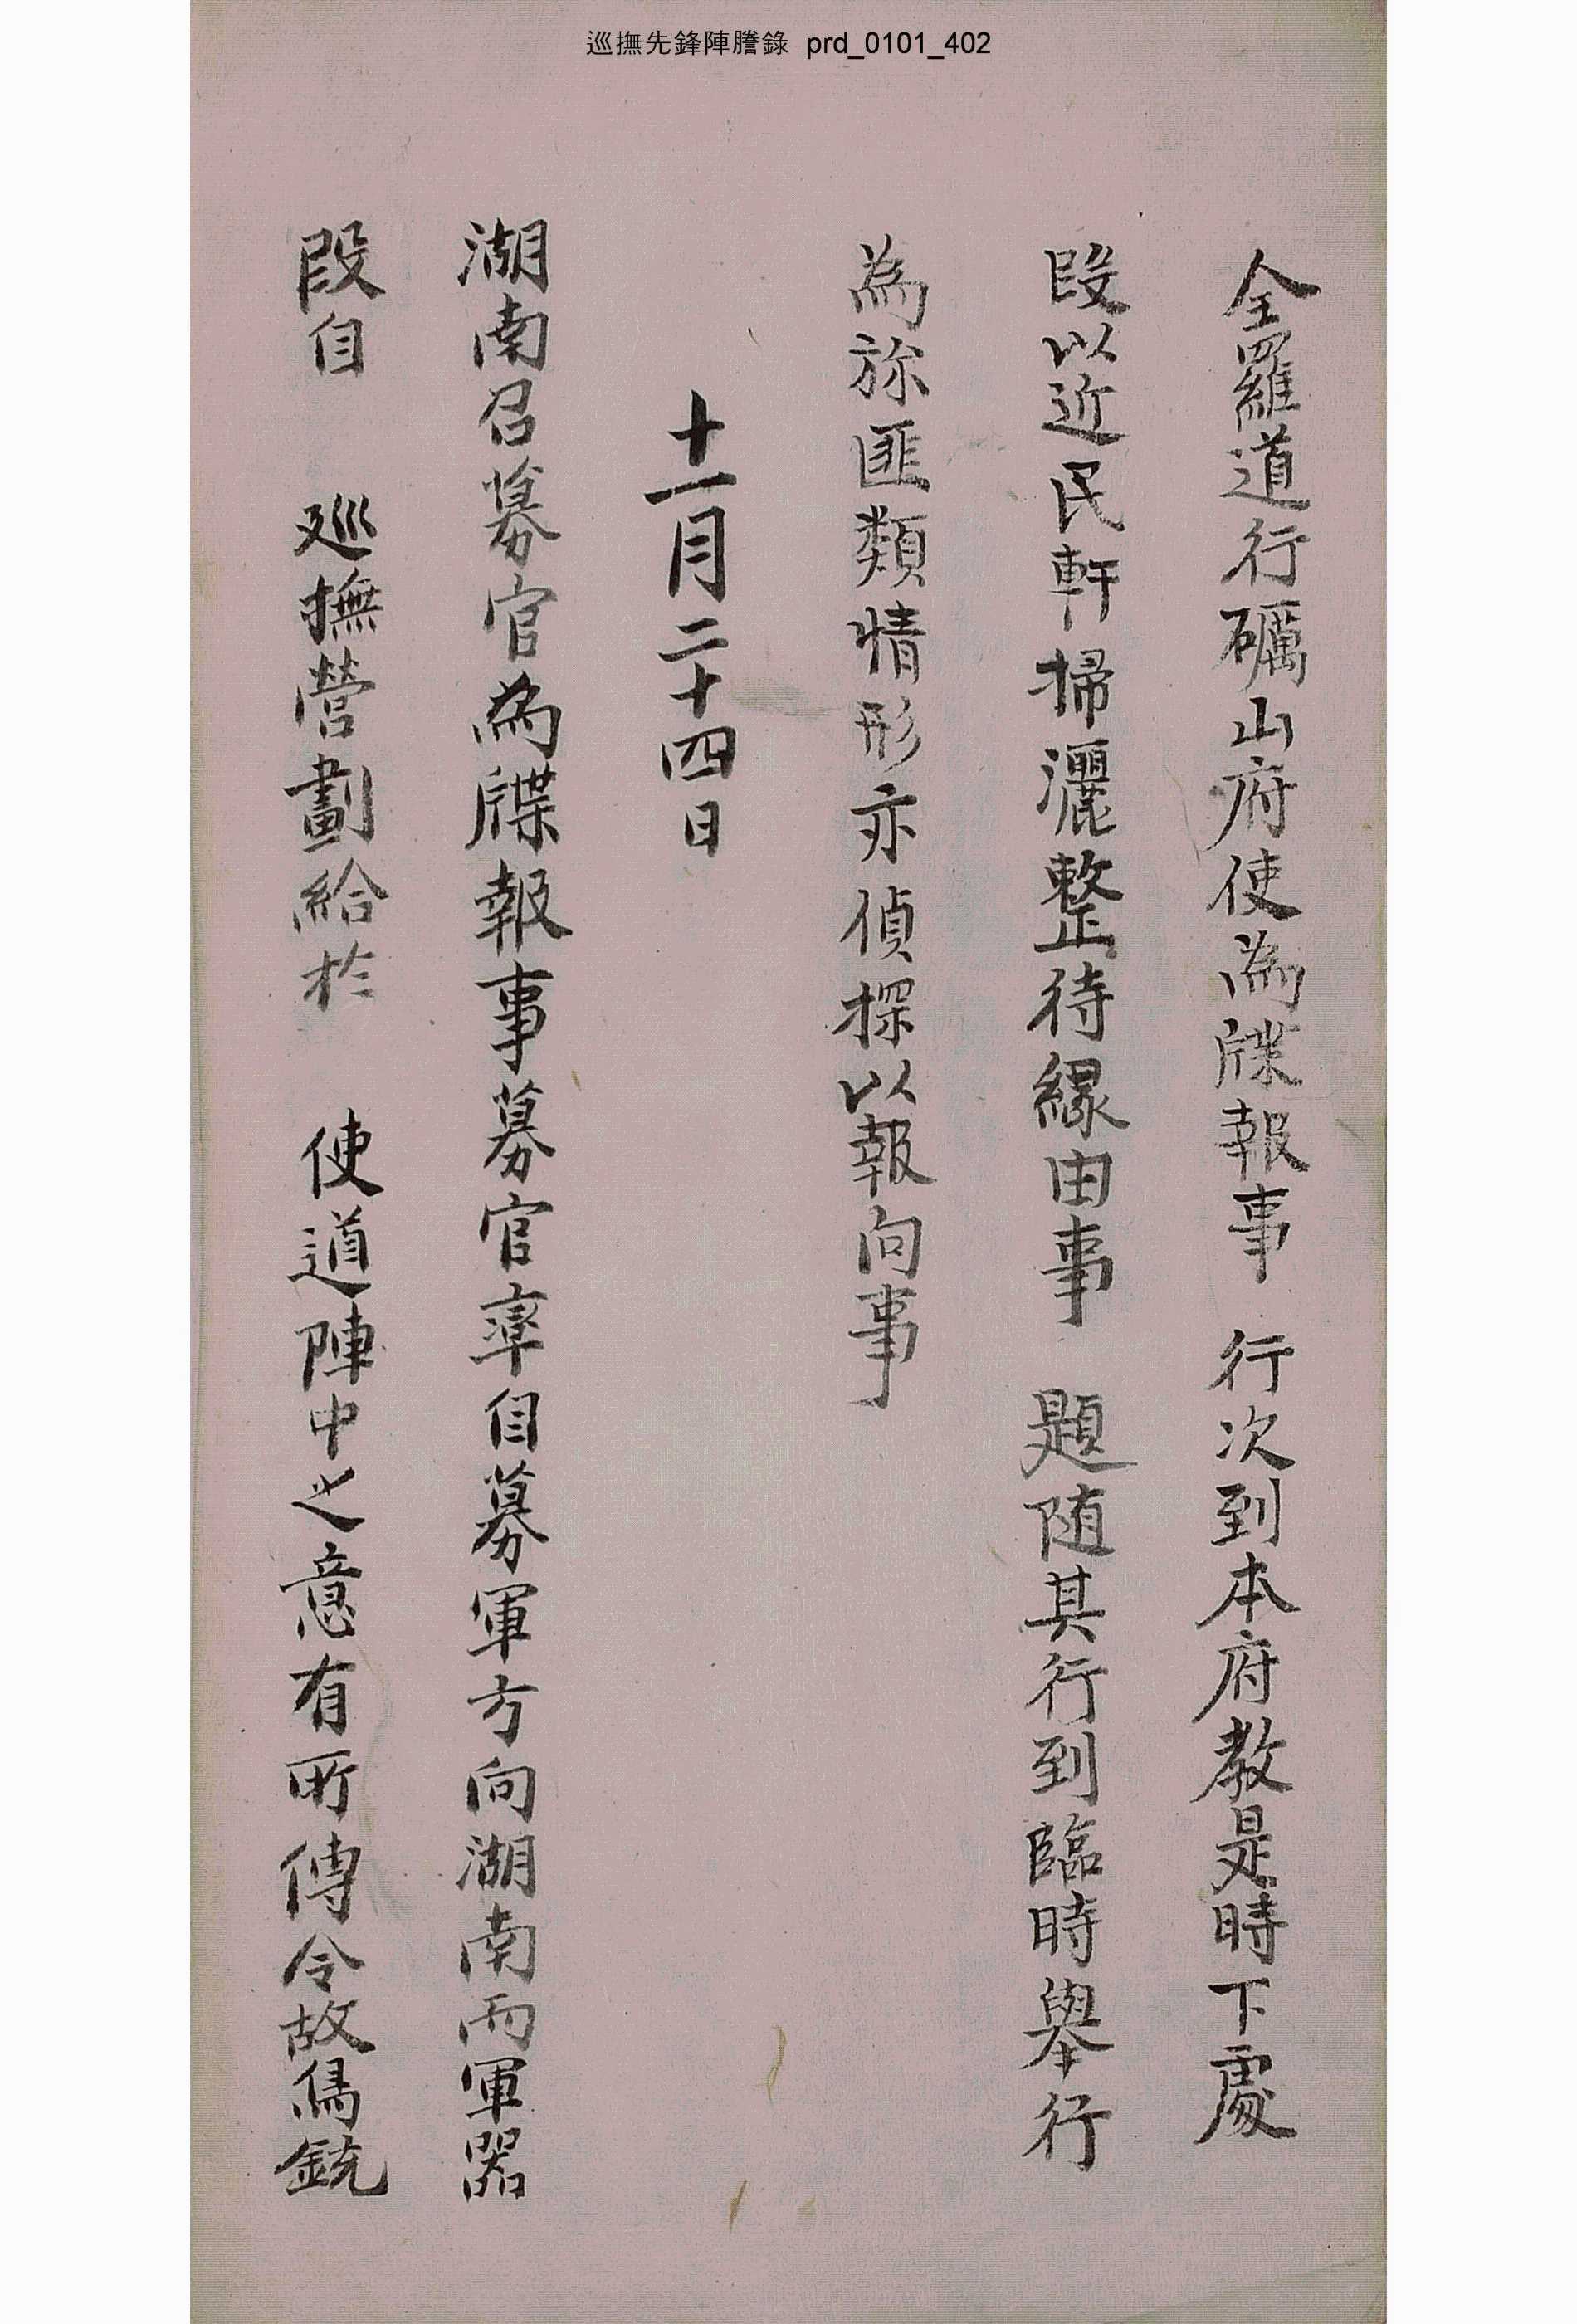 巡撫先鋒陣謄錄 prd_0101_402
全羅道行礪山府使爲牒報事 行次到本府敎是時下處
段以近民軒掃灑整待緣由事 題随其行到臨時擧行
為旀匪類情形亦偵探以報向事
十一月二十四日
湖南召募官爲牒報事募官率自募軍方向湖南而軍器
段自 巡撫營劃給於 使道陣中之意有所傳令故鳥銃